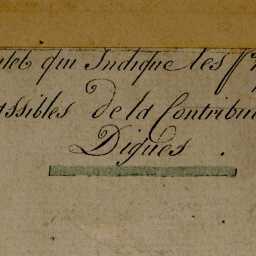 qui Indique les
passibles de la Contribu
Digues .